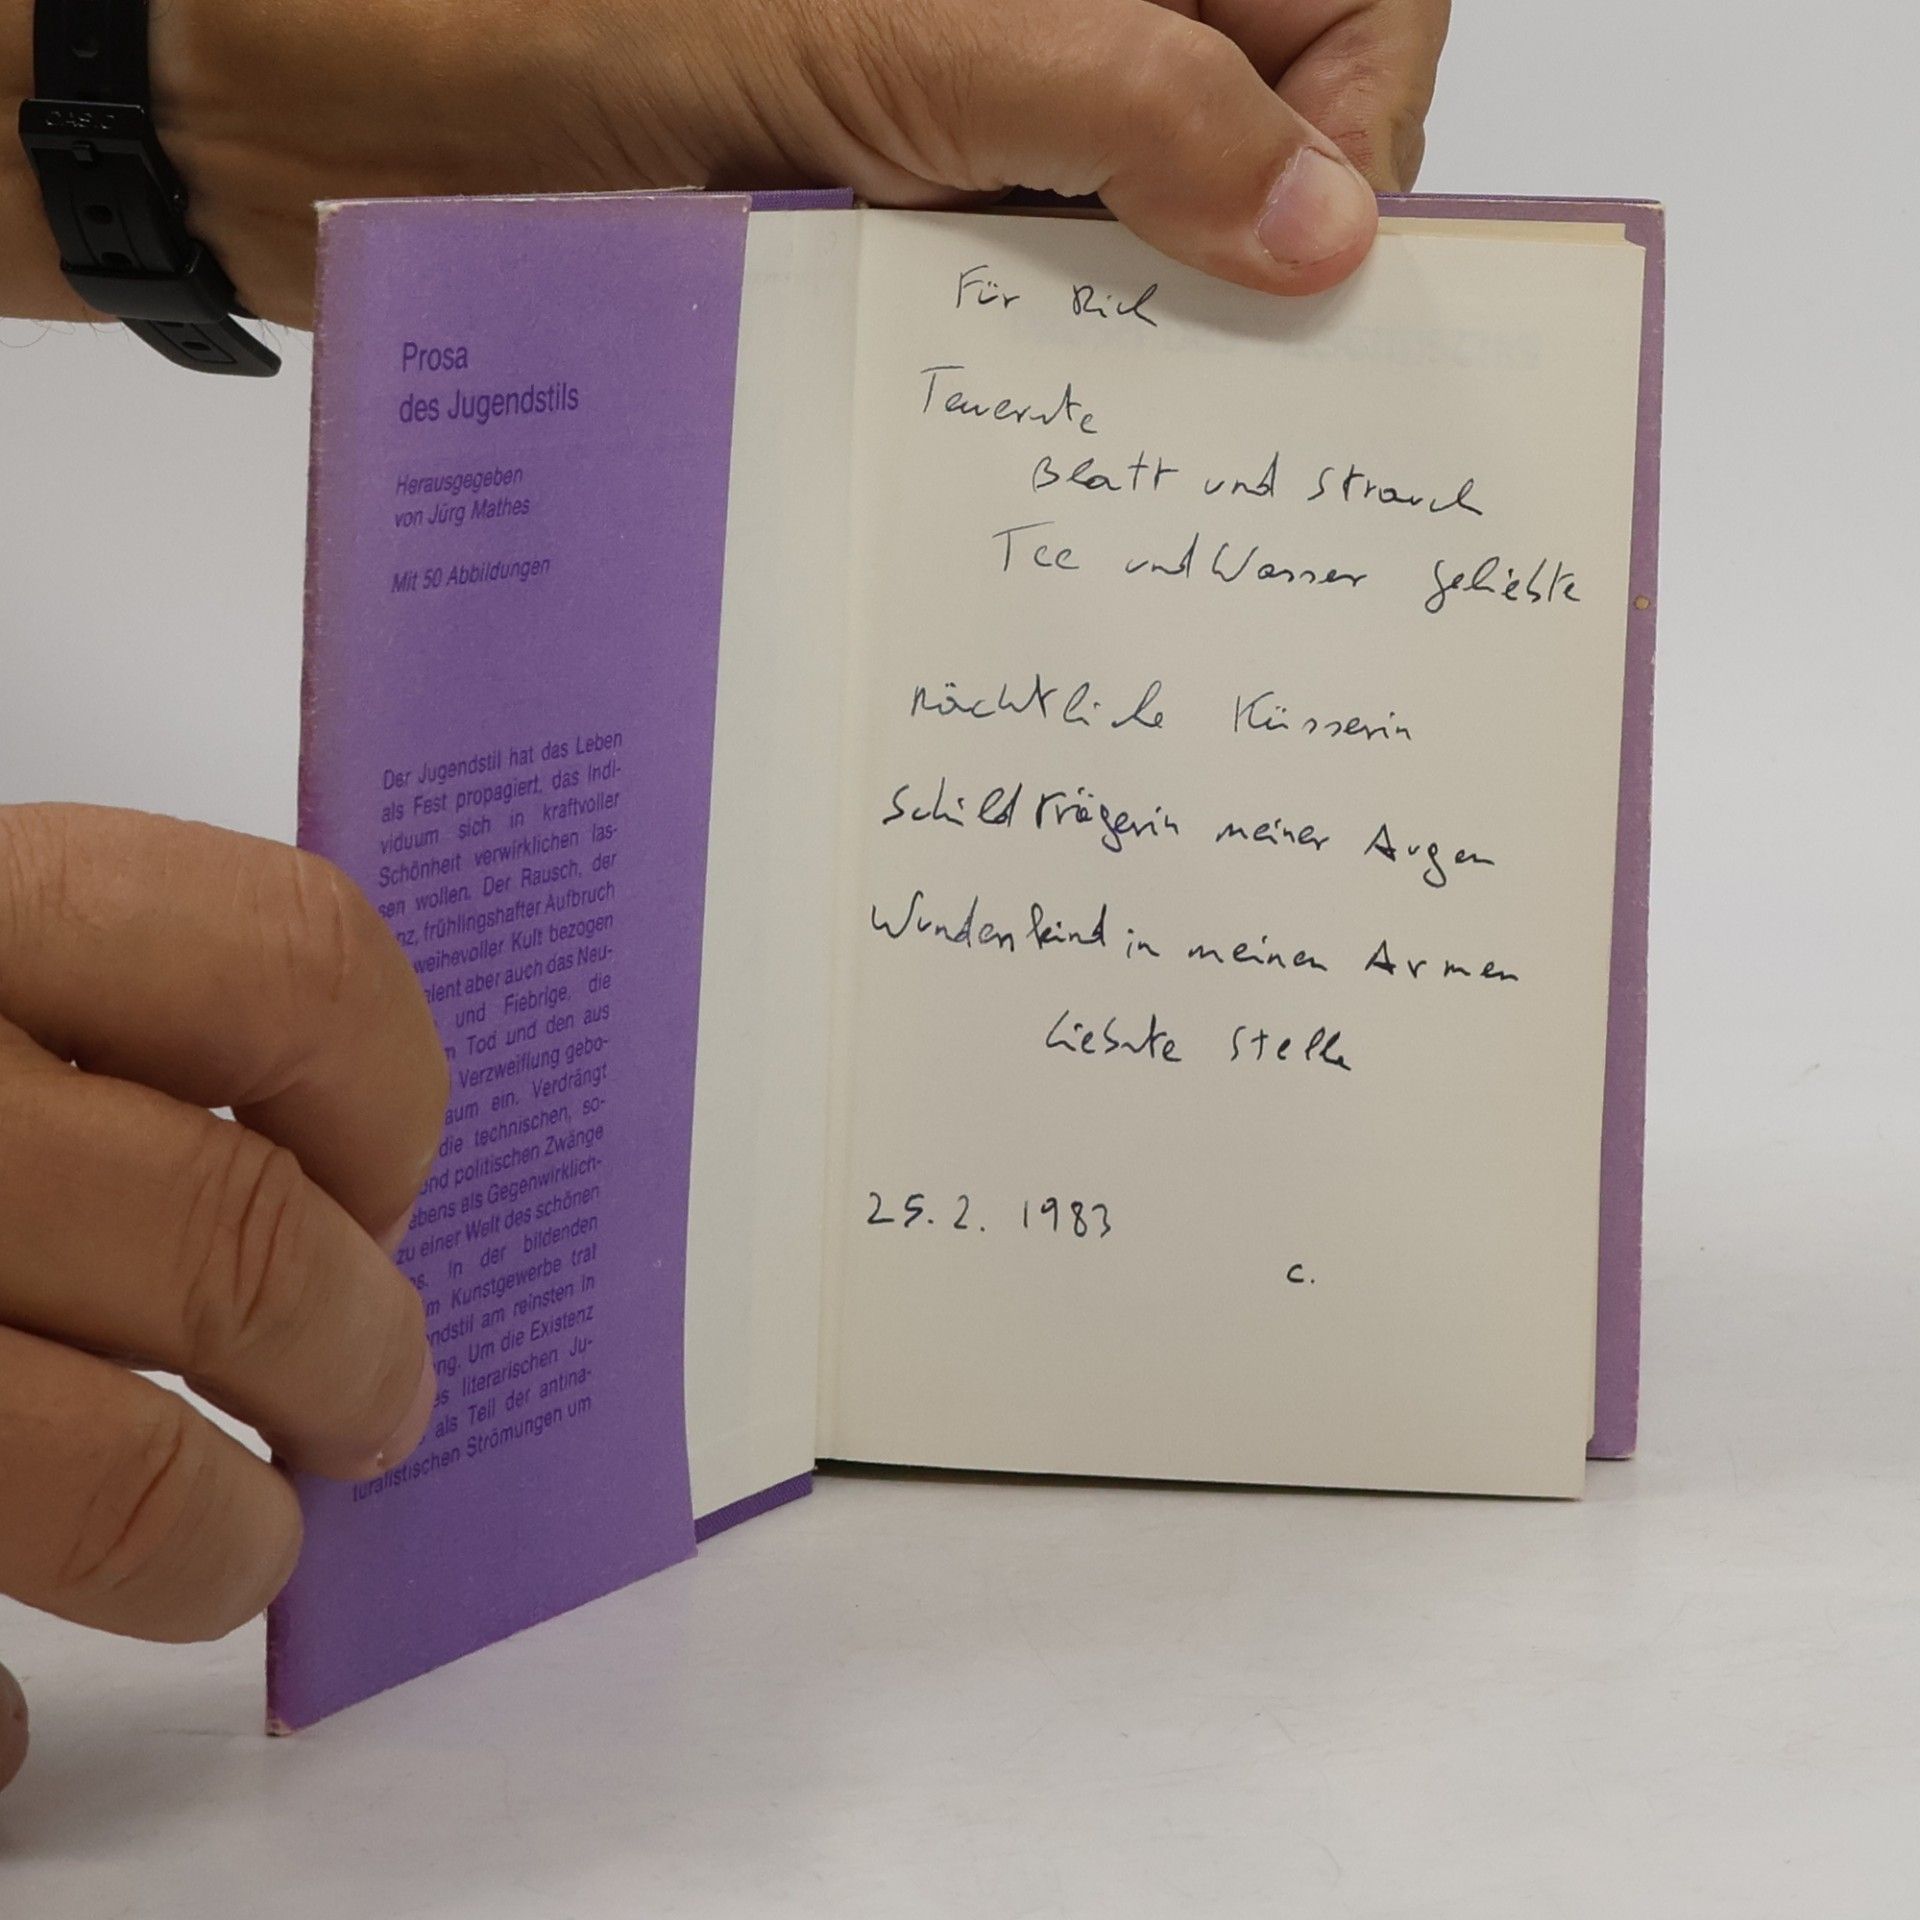 CASIO
Prosa
des Jugendstils
Herausgegeben
von Jürg Mathes
Mit 50 Abbildungen
Der Jugendstil hat das Leben
als Fest propagiert, das Indi-
viduum sich in kraftvoller
Schönheit verwirklichen las-
sen wollen. Der Rausch, der
nz, frühlingshafter Aufbruch
weihevoller Kult bezogen
alent aber auch das Neu-
und Fiebrige, die
m Tod und den aus
Verzweiflung gebo-
aum ein. Verdrängt
die technischen, so-
und politischen Zwänge
abens als Gegenwirklich-
zu einer Welt des schönen
es. In der bildenden
im Kunstgewerbe trat
ndstil am reinsten in
ng. Um die Existenz
es literarischen Ju-
als Teil der antina-
turalistischen Strömungen um
Für Dich
Teuerste
Blatt und Strauch
Tee und Wasser geliebte
nächtliche Küsserin
Schildträgerin meiner Augen
Wundenkind in meinen Armen
Liebste Stelle
25. 2. 1983
C.